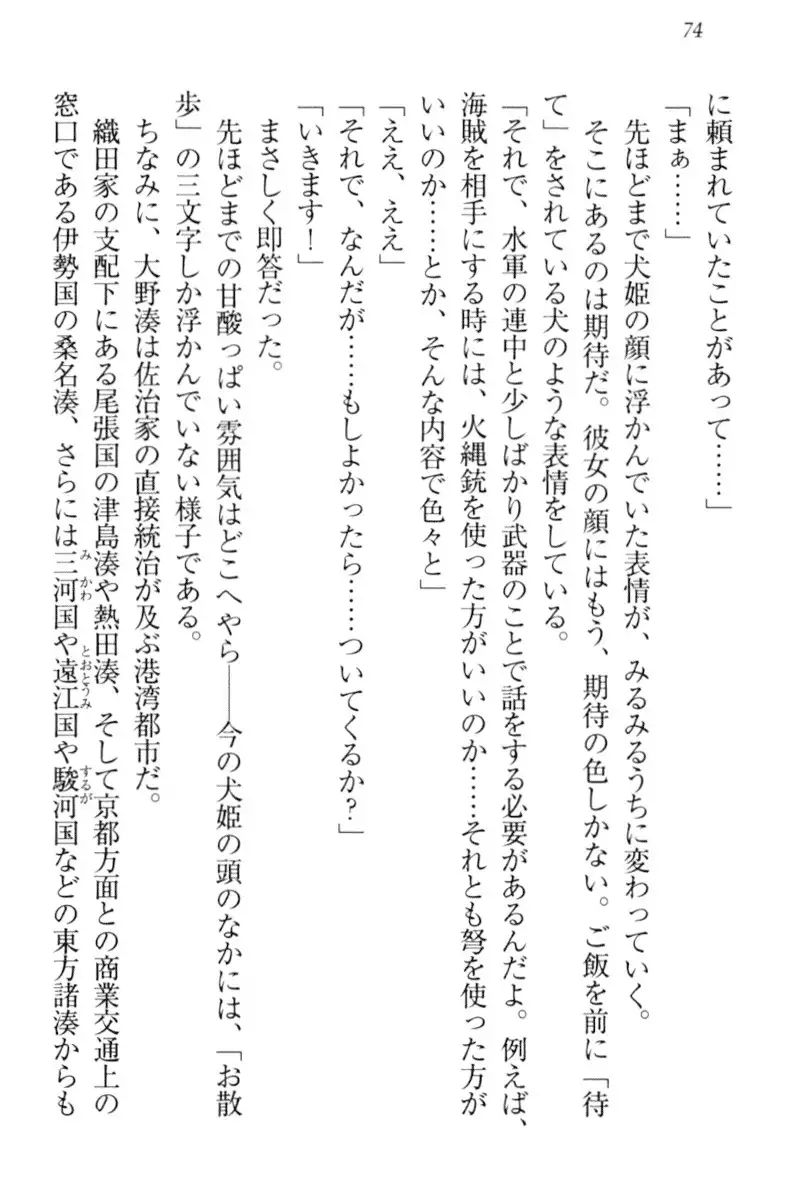 74
に頼まれていたことがあって……」
「まぁ……」
先ほどまで犬姫の顔に浮かんでいた表情が、みるみるうちに変わっていく。
そこにあるのは期待だ。彼女の顔にはもう、期待の色しかない。ご飯を前に「待
て」をされている犬のような表情をしている。
「それで、水軍の連中と少しばかり武器のことで話をする必要があるんだよ。例えば、
海賊を相手にする時には、火縄銃を使った方がいいのか……それとも弩を使った方が
いいのか……とか、そんな内容で色々と」
「ええ、ええ」
「それで、なんだが……もしよかったら……ついてくるか？」
「いきます！」
まさしく即答だった。
先ほどまでの甘酸っぱい雰囲気はどこへやら――今の犬姫の頭のなかには、「お散
歩」の三文字しか浮かんでいない様子である。
ちなみに、大野湊は佐治家の直接統治が及ぶ港湾都市だ。
織田家の支配下にある尾張国の津島湊や熱田湊、そして京都方面との商業交通上の
窓口である伊勢国の桑名湊、さらには三河国や遠江国や駿河国などの東方諸湊からも
みかわ
とおとうみ
するが